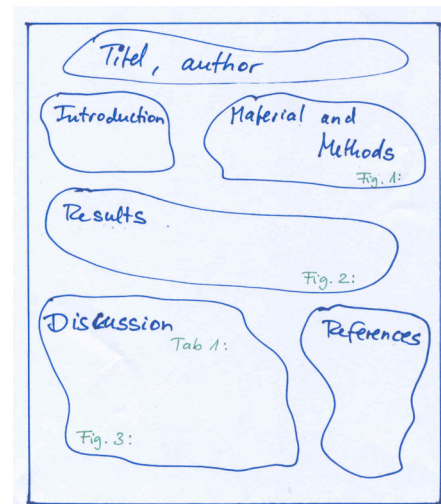 Titel, author
Introduction
Material and
Methods
Fig. 1:
Results
Fig. 2:
Discussion
Tab 1:
Fig. 3:
References